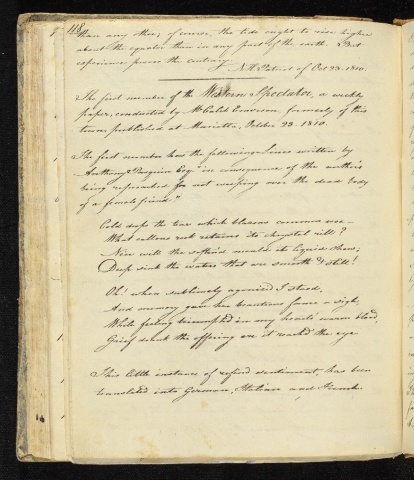 118
than any other; of course, the tide ought to rise higher
about the equator than in any part of the earth. But
experience proves the contrary.
N.H. Patriot of Oct 23. 1810.
The first number of the Western Spectator, a weekly
paper, conducted by Mr Caleb Emerson formerly of this
town, published at Marietta, October 23. 1810.
The first number has the following lines written by
"Anthony Pasquin Esq." in consequence of the author's
being reproached for not weeping over the dead body
of a female friend."
Cold drops the tear which blazons common woe
What callous rock retains its chrystal rill?
Ne'er will the softened mould its liquid shew;
Deep sink the waters that are smooth & still!
Oh! when sublimely agonized I stood,
And memory gave her beauteous frame a sigh,
While feeling triumph'd in my heart's warm blood,
Grief drank the offering ere it reach'd the eye.
This little instance of refined sentiment, has been
translated into German, Italian and French.